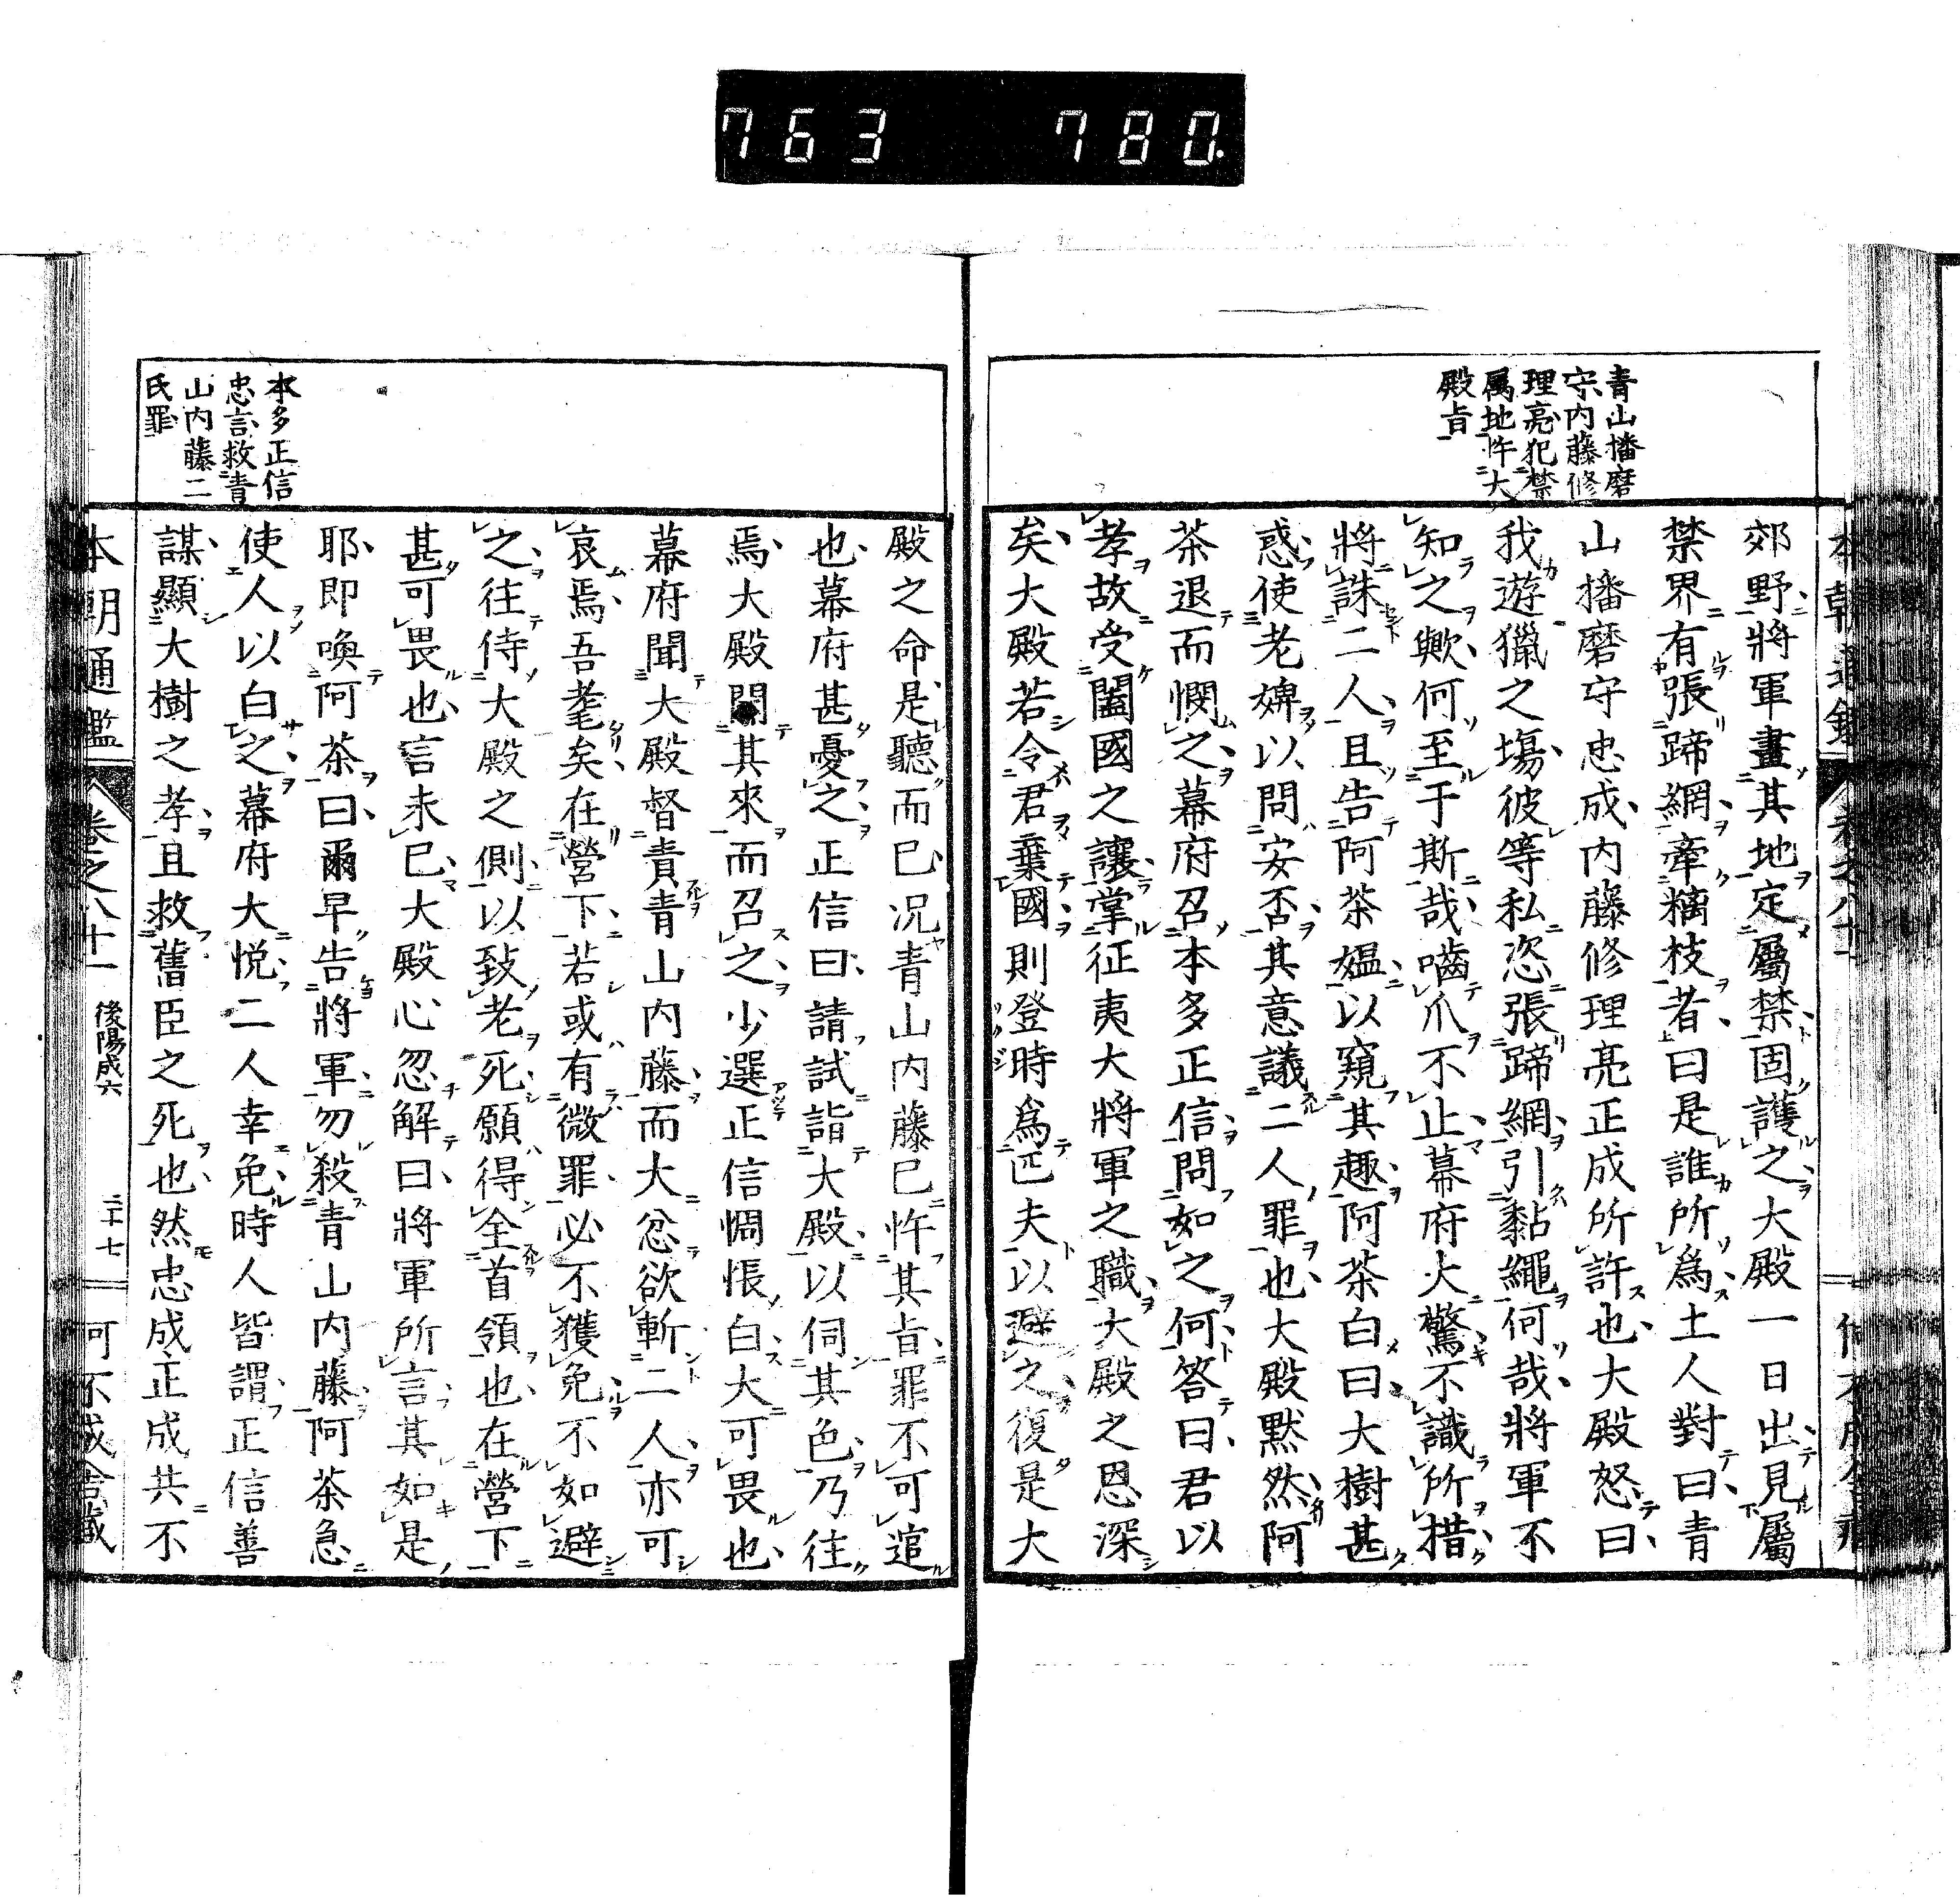 763 780.
青山播磨
守内藤修
理亮犯禁
属地忤大
殿旨
郊野將軍畫其地定屬禁固護之大殿一日出見屬
禁界有張蹄網牽黐枝者曰是誰所爲土人對曰青
山播磨守忠成内藤修理亮正成所許也大殿怒曰
我遊獵之塲彼等私恣張蹄網引黏繩何哉將軍不
知之歟何至于斯哉嚙爪不止幕府大驚不識所措
將誅二人且告阿茶媼以窺其趣阿茶白曰大樹甚
惑使老婢以問安否其意議二人罪也大殿默然阿
茶退而憫之幕府召本多正信問如之何答曰君以
孝故受闔國之讓掌征夷大將軍之職大殿之恩深
矣大殿若令君棄國則登時爲匹夫以避之復是大
本多正信
忠言救青
山内藤二
氏罪
殿之命是聽而已况青山内藤已忤其旨罪不可逭
也幕府甚憂之正信曰請試詣大殿以伺其色乃往
焉大殿聞其來而召之少選正信惆悵白大可畏也
幕府聞大殿督責青山内藤而大忿欲斬二人亦可
哀焉吾耄矣在營下若或有微罪必不獲免不如避
之往侍大殿之側以致老死願得全首領也在營下
甚可畏也言未已大殿心忽解曰將軍所言其如是
耶即喚阿茶曰爾早告將軍勿殺青山内藤阿茶急
使人以白之幕府大悦二人幸免時人皆謂正信善
謀顯大樹之孝且救舊臣之死也然忠成正成共不
本朝通鑑 卷之八十一 後陽成六 二十七